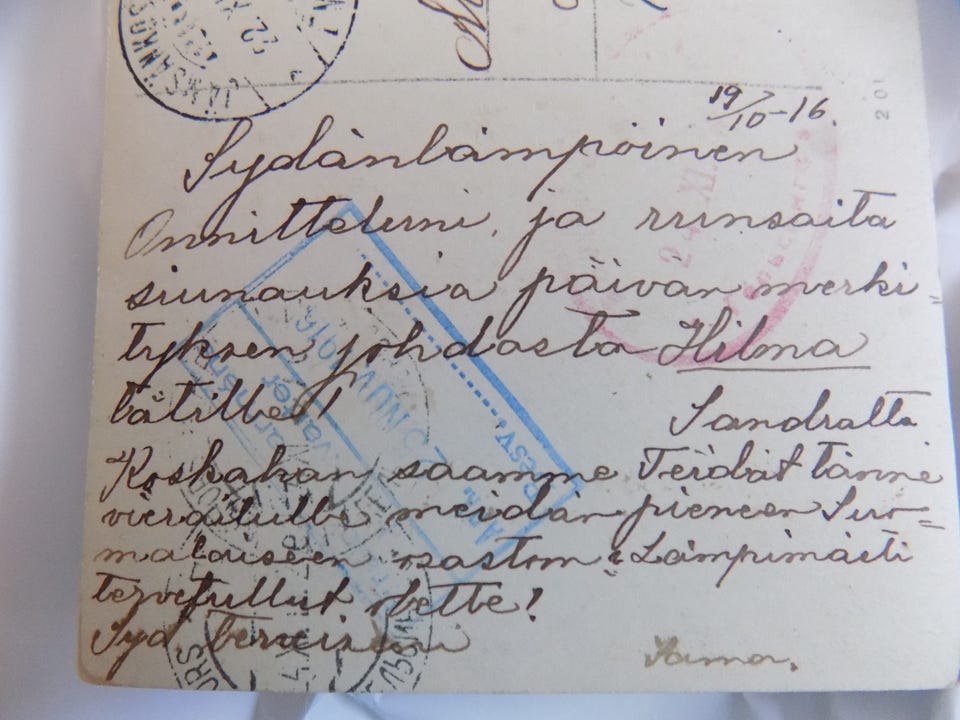 19/10-16.
Sydänlämpöinen
Onnitteluni, ja runsaita
siunauksia päivän merki=
tyksen johdosta Hilma
tätille! Sandralta
Koskahan saamme Teidät tänne
vierailulle meidän pieneen Suo=
malaiseen osastom Lämpimästi
tervetullut olette!
Syd terveiseni
Sama.
201